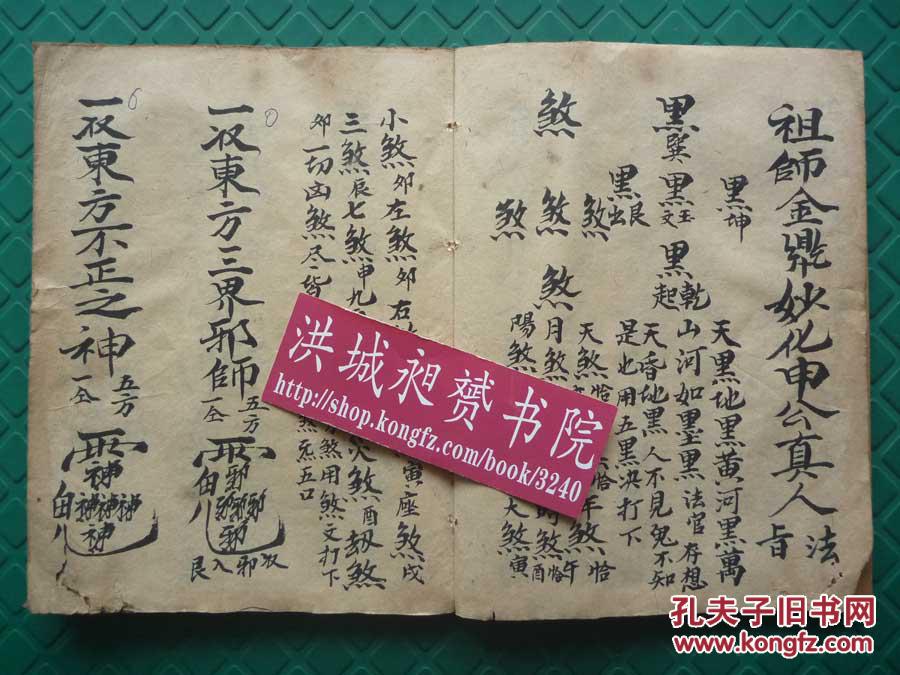 祖師金鼎妙化申公真人法旨
黑坤
天黑地黑黃河黑萬
山河如墨黑法官存想
天昏地黑人不見鬼不知
是也用五黑决打下
黑乾起
黑巽
黑
黑艮出
煞
煞
煞
煞
煞
天煞恰
月煞
陽煞
午煞恰
煞午恰
煞酉
大煞寅
小煞卯左煞卯右
寅座煞戌
三煞辰七煞申九
火煞酉劫煞
卯一切凶煞尽皆
煞用煞文打下
煞炁五口
一収東方三界邪師五方一仝
邪
収邪入艮
一収東方不正之神五方一仝
神神神神神
洪城昶赟书院
http://shop.kongfz.com/book/3240
孔夫子旧书网
www.kongfz.com